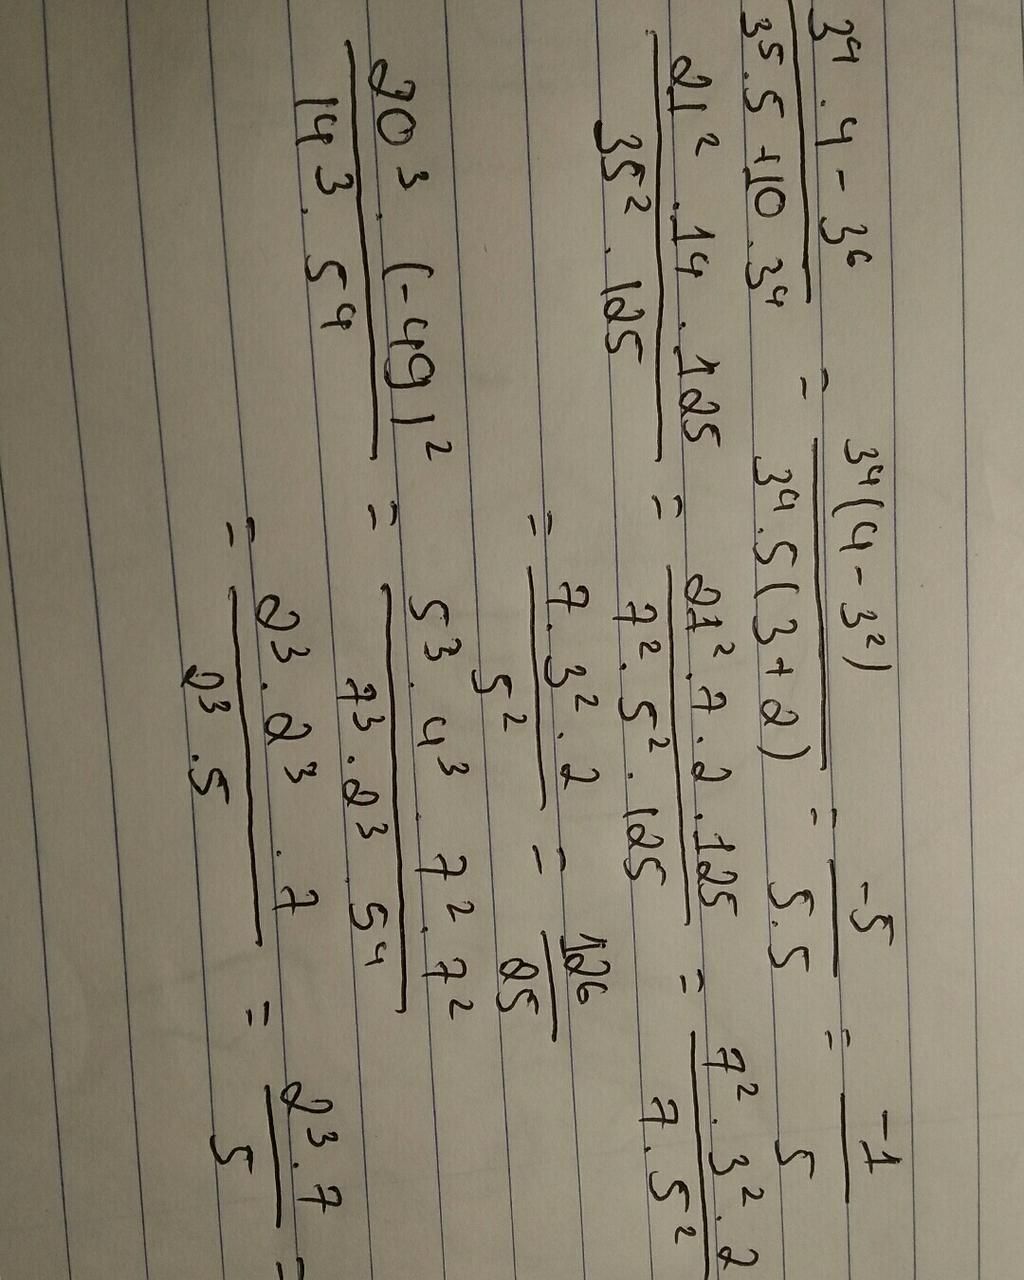 3⁴ . 4 - 3⁶ / 3⁵ . 5 + 10 . 3⁴ = 3⁴(4 - 3²) / 3⁴ . 5(3 + 2) = -5 / 5 . 5 = -1 / 5
21² . 14 . 125 / 35² . 125 = 21² . 7 . 2 . 125 / 7² . 5² . 125 = 7² . 3² . 2 / 7 . 5²
= 7 . 3² . 2 / 5² = 126 / 25
20³ . (-49)² / 14³ . 5⁴ = 5³ . 4³ . 7² . 7² / 7³ . 2³ . 5⁴
= 2³ . 2³ . 7 / 2³ . 5 = 2³ . 7 / 5 =